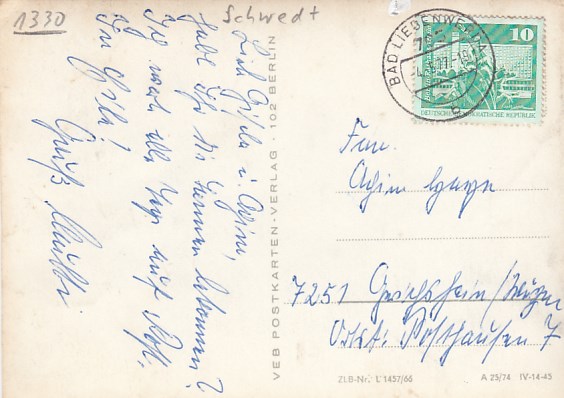 1330
Schwedt
Liebe Gisela u. Achim,
habt Ihr die bekommen?
Ich alle Tage auf Post.
In Eile!
Gruß Mutti
VEB POSTKARTEN-VERLAG · 102 BERLIN
BAD LIEBENWERDA
10
DEUTSCHE DEMOKRATISCHE REPUBLIK
Fam.
Achim
7251
Posthausen 7
ZLB-Nr. L 1457/66 A 25/74 IV-14-45